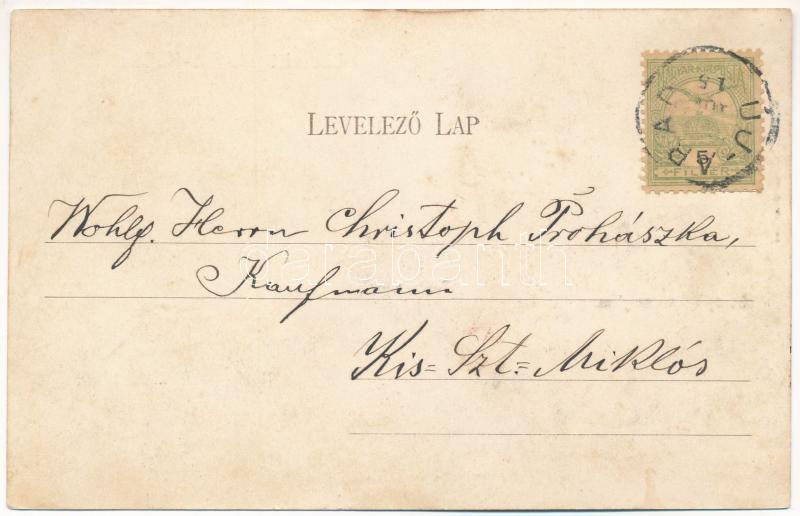 LEVELEZŐ LAP
MAGYAR KIR. POSTA
5
FILLÉR
UJ-ARAD
Wohlg. Herrn Christoph Prohászka,
darabanth
Kaufmann
Kis=Szt=Miklós